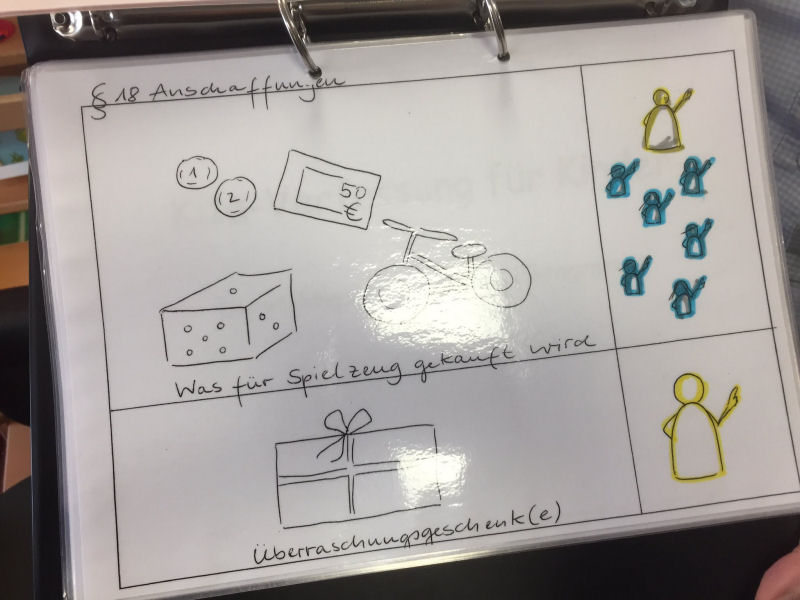 § 18 Anschaffungen
(1)
(2)
50
€
Was für Spielzeug gekauft wird
Überraschungsgeschenk(e)